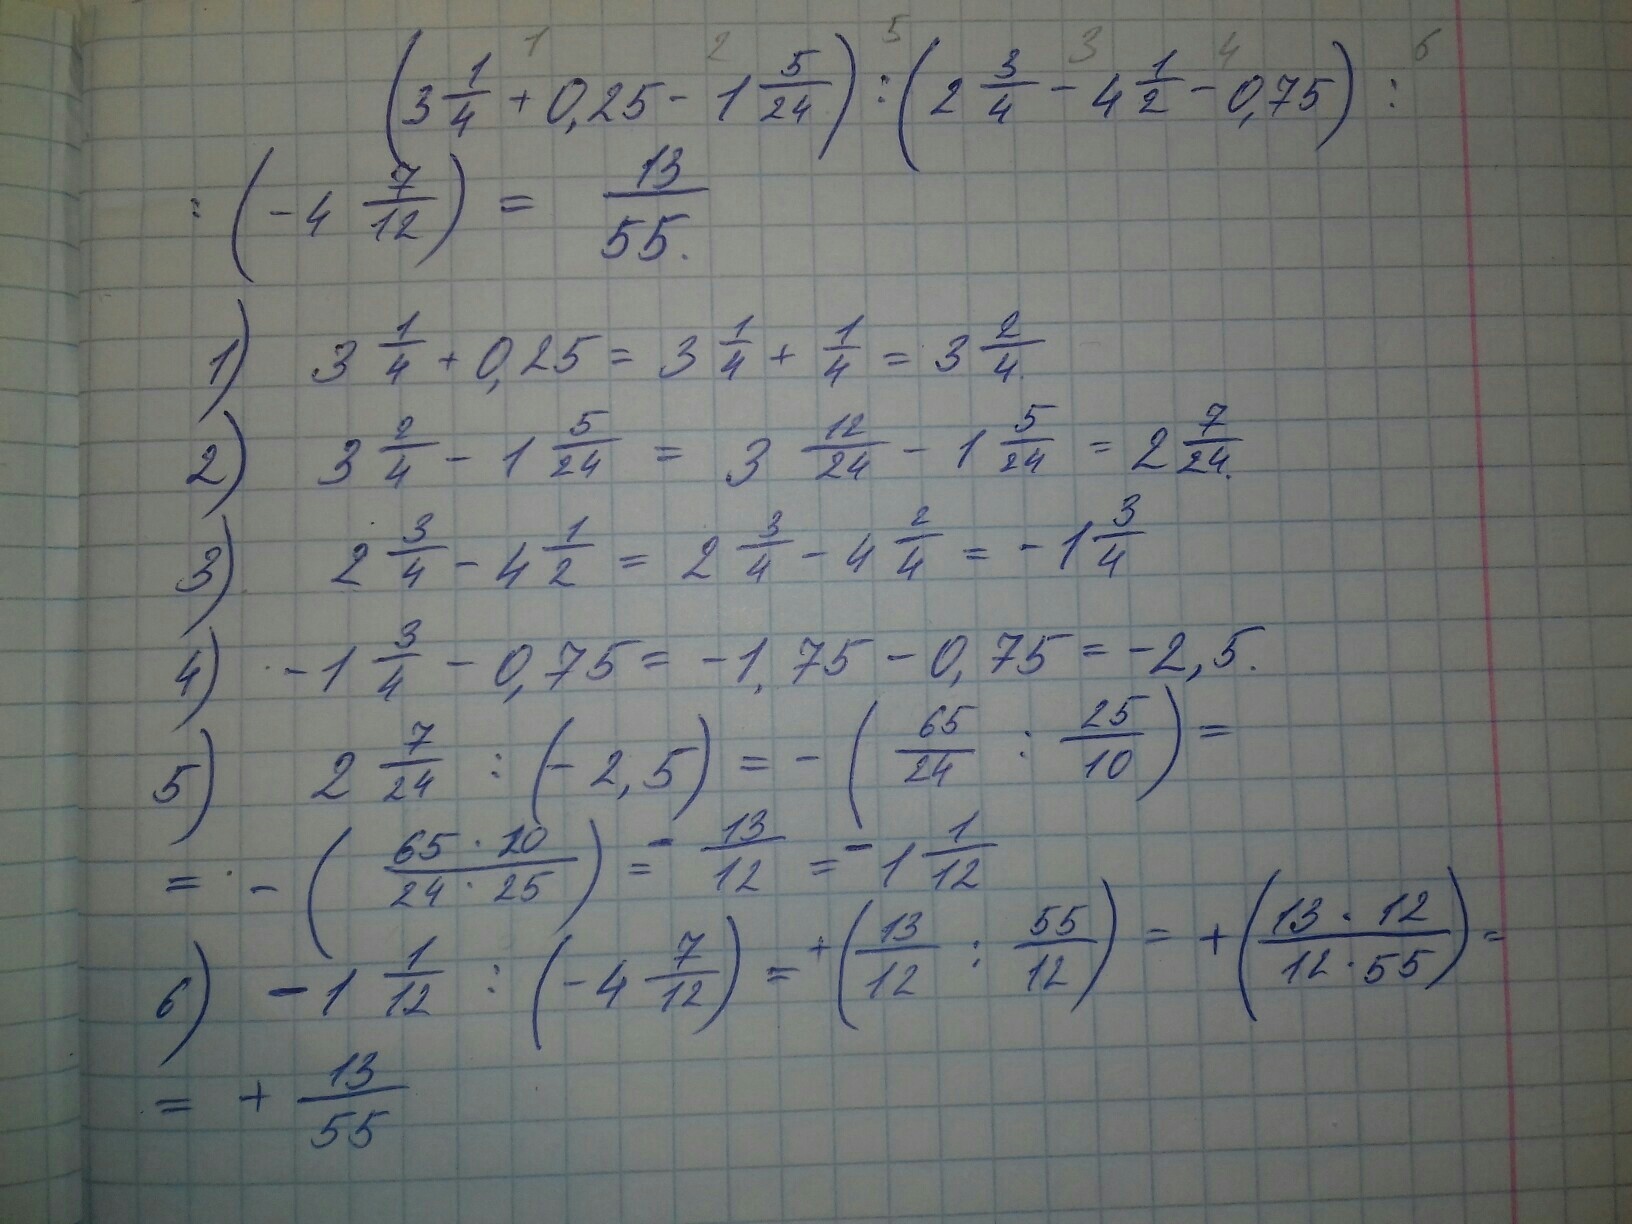 1 2 5 3 4 6
(3 1/4 + 0,25 - 1 5/24) : (2 3/4 - 4 1/2 - 0,75) :
: (-4 7/12) = 13/55.
1) 3 1/4 + 0,25 = 3 1/4 + 1/4 = 3 2/4.
2) 3 2/4 - 1 5/24 = 3 12/24 - 1 5/24 = 2 7/24.
3) 2 3/4 - 4 1/2 = 2 3/4 - 4 2/4 = -1 3/4
4) -1 3/4 - 0,75 = -1,75 - 0,75 = -2,5.
5) 2 7/24 : (-2,5) = - (65/24 : 25/10) =
= - (65 · 10 / 24 · 25) = - 13/12 = -1 1/12
6) -1 1/12 : (-4 7/12) = + (13/12 : 55/12) = + (13 · 12 / 12 · 55) =
= + 13/55